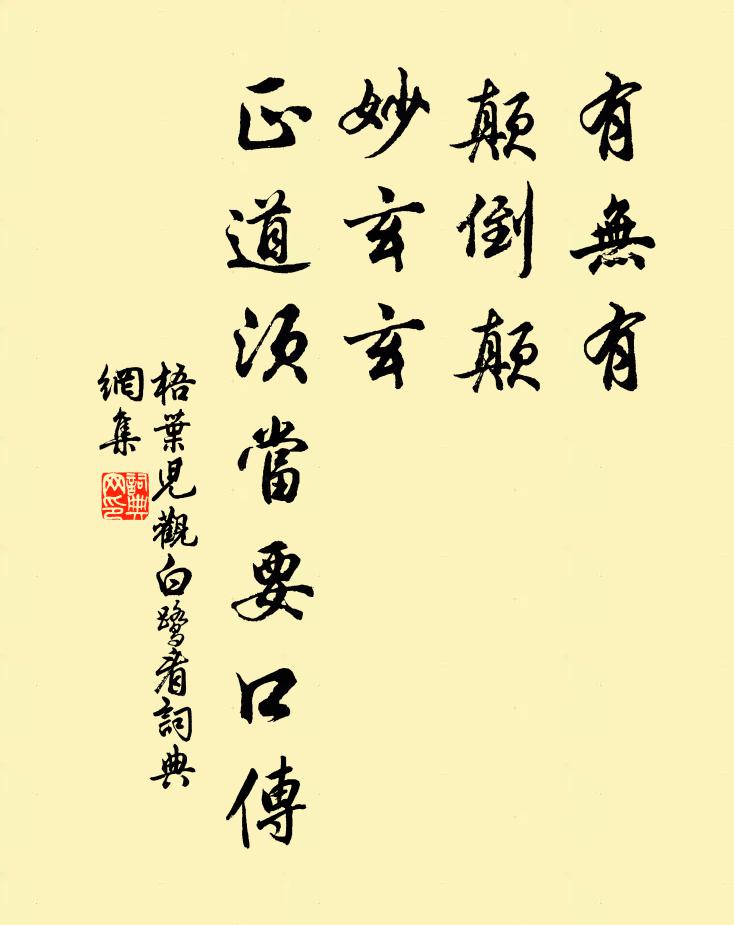 有無有
顛倒顛
妙玄玄
正道須當要口傳
梧葉児觀白鹭者詞典
網集
詞典
网印